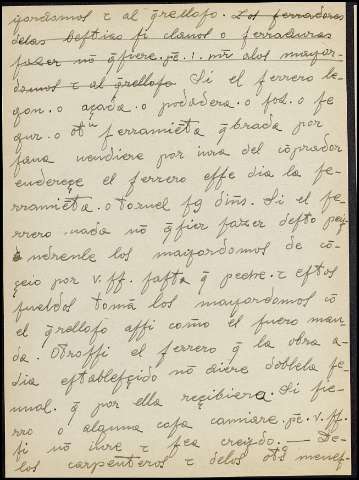 yordasmos τ al q̃relloso. Los ferradores
delas bestias si clauos o ferraduras
fazer nõ q̃siere. pẽ. i. mr̃ alos mayor-
domos τ al q̃relloso Si el ferrero le-
gon. o açada. o podadera. o foz. o se
gur. o otᵃ ferramiẽta q̃brada por
sana uendiere por iura del cõprador
enderesçe el ferrero esse dia la fe-
rramiẽta. o tornel sq dirs̃. Si el fe-
rrero nada nõ q̃sier fazer desto peñ
ndrenle los mayordomos de cõ-
çeio por v. ss. fasta q̃ peche. τ estos
sueldos tomẽ los mayordomos cõ
el q̃relloso assi como el fuero man-
da. Otrossi el ferrero q̃ la obra a-
dia establesçido nõ diere doblela se-
nnal. q̃ por ella reçibiera. Si fie-
rro o alguna cosa camiare. pẽ. v. ss.
si nõ iure τ sea creydo. — De-
los carpenteros τ delos otᵒs menes-